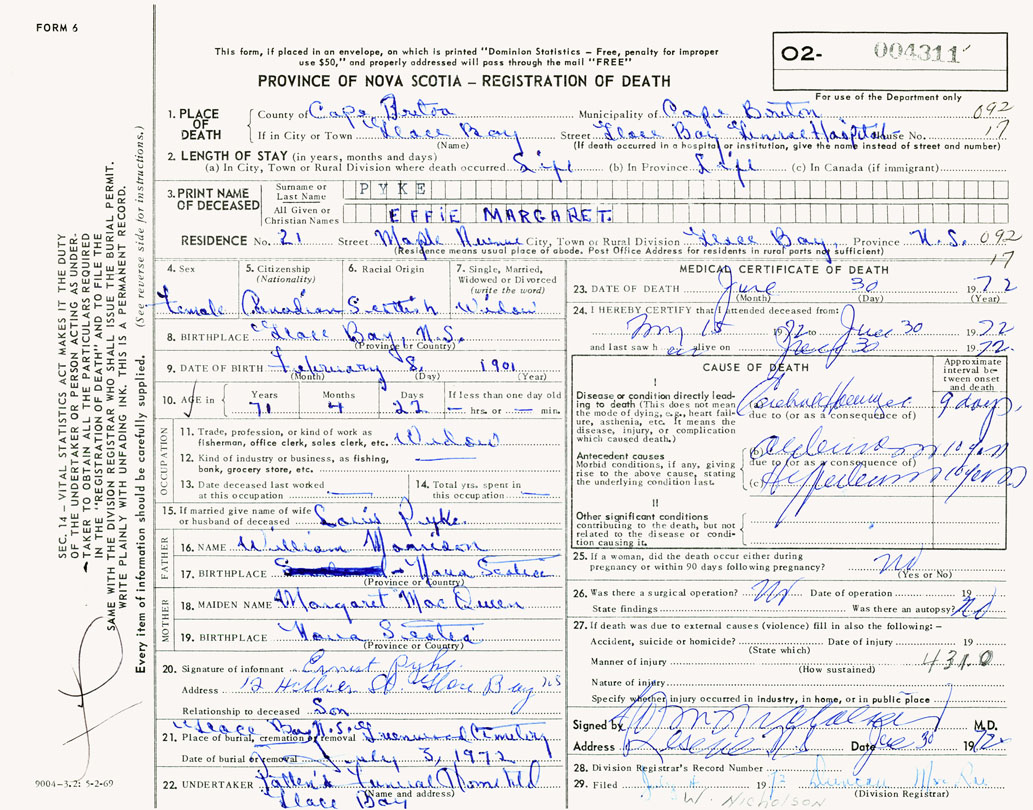 FORM 6
This form, if placed in an envelope, on which is printed "Dominion Statistics – Free, penalty for improper
use $50," and properly addressed will pass through the mail "FREE"
PROVINCE OF NOVA SCOTIA – REGISTRATION OF DEATH
O2- 004311
For use of the Department only
1. PLACE OF DEATH
County of Cape Breton Municipality of Cape Breton 092
If in City or Town Glace Bay Street Glace Bay General Hospital House No. 17
(Name) (If death occurred in a hospital or institution, give the name instead of street and number)
2. LENGTH OF STAY (in years, months and days)
(a) In City, Town or Rural Division where death occurred Life (b) In Province Life (c) In Canada (if immigrant)
3. PRINT NAME OF DECEASED
Surname or Last Name PYKE
All Given or Christian Names EFFIE MARGARET.
RESIDENCE No. 21 Street Maple Avenue City, Town or Rural Division Glace Bay, Province N.S. 092
(Residence means usual place of abode. Post Office Address for residents in rural parts not sufficient) 17
4. Sex
Female
5. Citizenship
(Nationality)
Canadian
6. Racial Origin
Scottish
7. Single, Married,
Widowed or Divorced
(write the word)
Widow
8. BIRTHPLACE Glace Bay, N.S.
(Province or Country)
9. DATE OF BIRTH February 8, 1901
(Month) (Day) (Year)
10. AGE in Years Months Days If less than one day old
71 4 22 — hrs. or — min.
OCCUPATION
11. Trade, profession, or kind of work as
fisherman, office clerk, sales clerk, etc. Widow
12. Kind of industry or business, as fishing,
bank, grocery store, etc.
13. Date deceased last worked
at this occupation
14. Total yrs. spent in
this occupation
15. If married give name of wife
or husband of deceased Louis Pyke.
FATHER
16. NAME William Morrison
17. BIRTHPLACE - Nova Scotia
(Province or Country)
MOTHER
18. MAIDEN NAME Margaret MacQueen
19. BIRTHPLACE Nova Scotia
(Province or Country)
20. Signature of informant Ernest Pyke
Address 12 Hillier St. Glace Bay NS
Relationship to deceased Son
Glace Bay N.S. Greenwood Cemetery
21. Place of burial, cremation or removal
Date of burial or removal July 3, 1972
22. UNDERTAKER Patten's Funeral Home Ltd
(Name and address)
Glace Bay
MEDICAL CERTIFICATE OF DEATH
23. DATE OF DEATH June 30 1972
(Month) (Day) (Year)
24. I HEREBY CERTIFY that I attended deceased from:
May 15 1972 to June 30 1972
and last saw her alive on June 30 1972.
CAUSE OF DEATH
Approximate
interval be-
tween onset
and death
I
Disease or condition directly lead-
ing to death (This does not mean
the mode of dying, e.g., heart fail-
ure, asthenia, etc. It means the
disease, injury, or complication
which caused death.)
(a) 9 days.
due to (or as a consequence of)
Antecedent causes
Morbid conditions, if any, giving
rise to the above cause, stating
the underlying condition last.
(b) 10 years
due to (or as a consequence of)
(c) 10 years
II
Other significant conditions
contributing to the death, but not
related to the disease or condi-
tion causing it.
25. If a woman, did the death occur either during
pregnancy or within 90 days following pregnancy? No
(Yes or No)
26. Was there a surgical operation? No Date of operation 19
State findings Was there an autopsy? No
27. If death was due to external causes (violence) fill in also the following: –
Accident, suicide or homicide? Date of injury 19
(State which)
Manner of injury 431.0
(How sustained)
Nature of injury
Specify whether injury occurred in industry, in home, or in public place
Signed by M.D.
Address Reserve N S Date June 30 1972
28. Division Registrar's Record Number
29. Filed July 4 1972 Duncan MacRae
(Division Registrar)
W. NICHOLSON
SEC. 14 – VITAL STATISTICS ACT MAKES IT THE DUTY
OF THE UNDERTAKER OR PERSON ACTING AS UNDER-
TAKER TO OBTAIN ALL THE PARTICULARS REQUIRED
IN THE "REGISTRATION OF DEATH" AND TO FILE THE
SAME WITH THE DIVISION REGISTRAR WHO SHALL ISSUE THE BURIAL PERMIT.
WRITE PLAINLY WITH UNFADING INK. THIS IS A PERMANENT RECORD.
Every item of information should be carefully supplied. (See reverse side for instructions.)
9004-3.2: 5-2-69